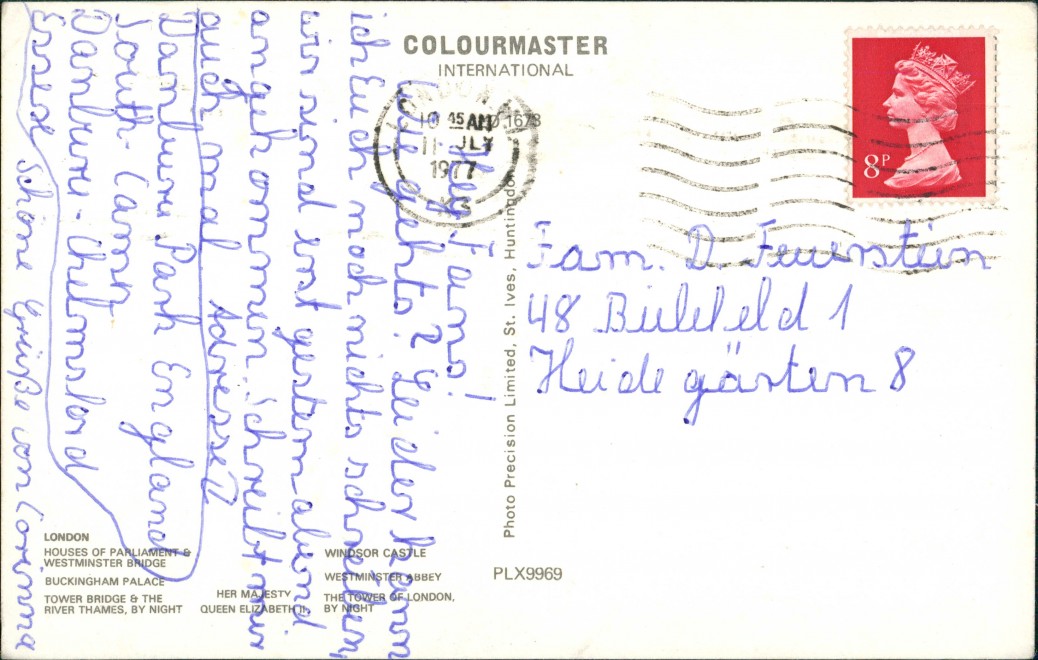 COLOURMASTER
INTERNATIONAL
10 45 AM
11 JLY
1977
8P
Hey Fans!
Wie geht's? Leider kann
ich Euch noch nichts schreiben,
wir sind erst gestern abend
angekommen. Schreibt mir
auch mal Adresse:
Danbury Park England
South-Camp
Danbury-Chelmsford
Essex
Schöne Grüße von Corinna
Fam. D. Feuerstein
48 Bielefeld 1
Heidegärten 8
Photo Precision Limited, St. Ives, Huntingdon
LONDON
HOUSES OF PARLIAMENT &
WESTMINSTER BRIDGE
BUCKINGHAM PALACE
TOWER BRIDGE & THE
RIVER THAMES, BY NIGHT
HER MAJESTY
QUEEN ELIZABETH II
WINDSOR CASTLE
WESTMINSTER ABBEY
THE TOWER OF LONDON,
BY NIGHT
PLX9969